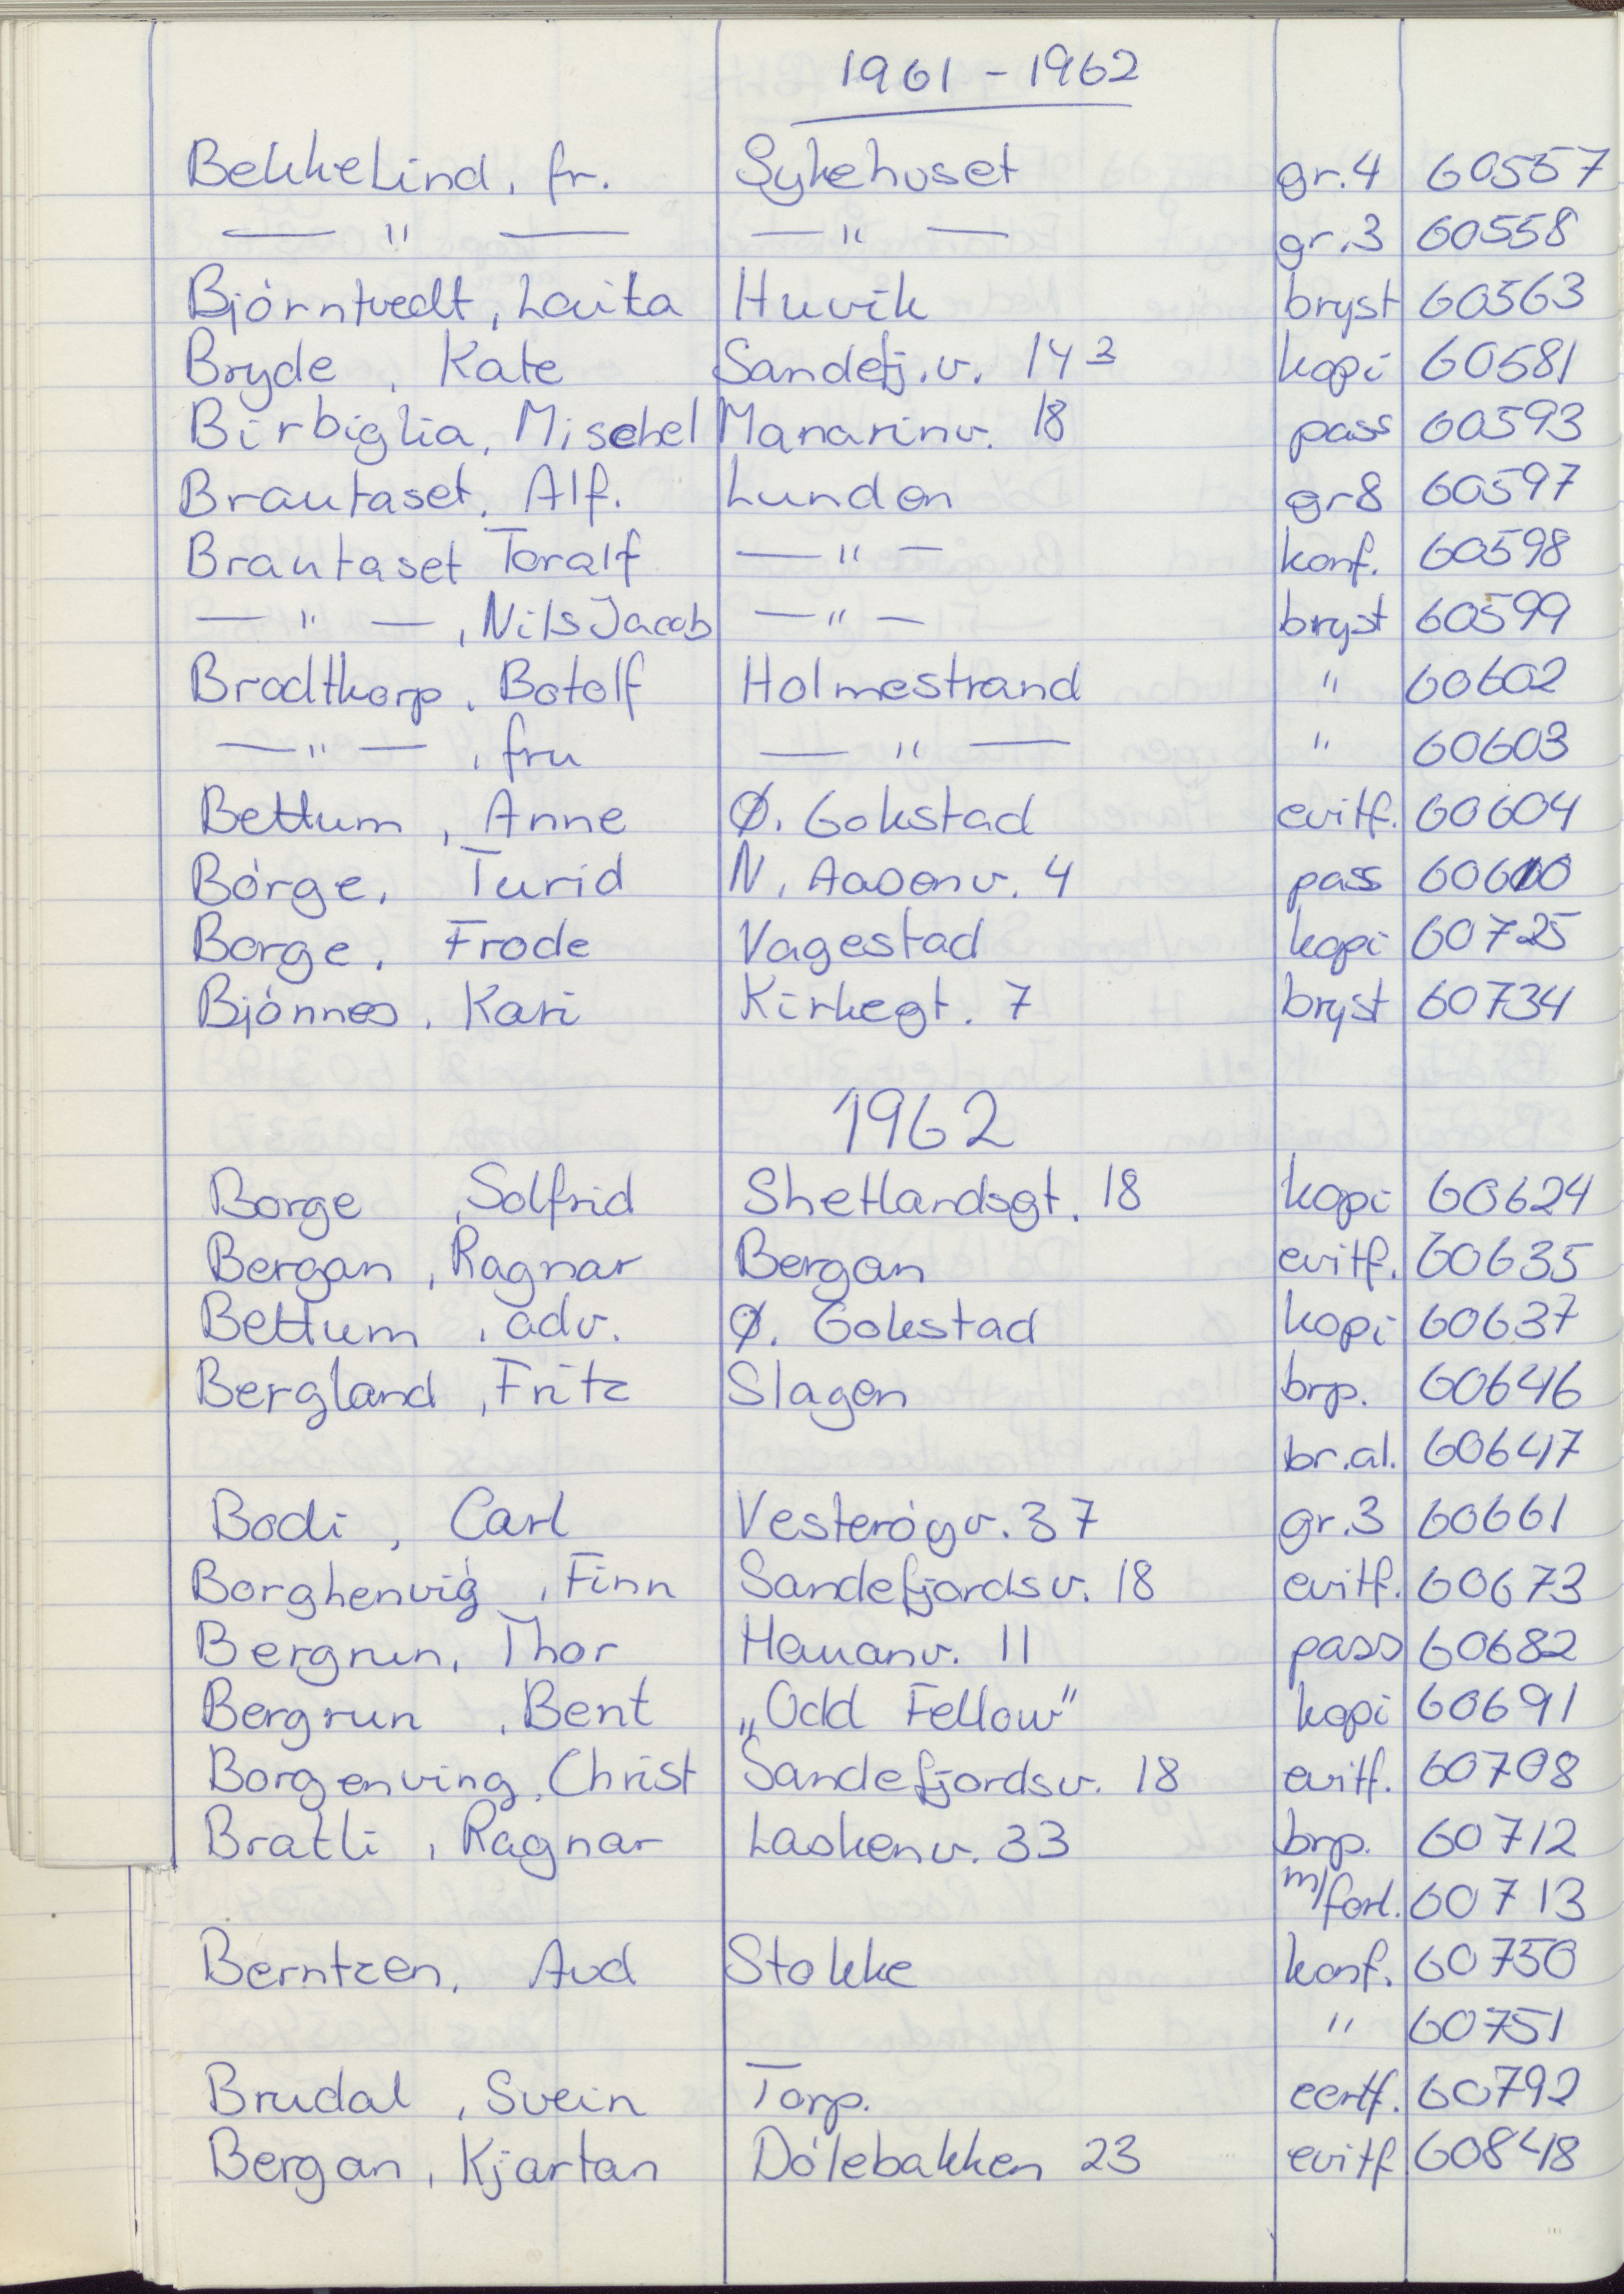 1961 - 1962
Bekkelind, fr. Sykehuset gr.4 60557
— " — — " — gr.3 60558
Bjórntvedt, Laita Huvik bryst 60563
Bryde, Kate Sandefj.v. 143 kopi 60581
Birbiglia, Mischel Manarinv. 18 pass 60593
Brautaset, Alf. Lunden gr8 60597
Brautaset Toralf — " — konf. 60598
— " —, Nils Jacob — " — bryst 60599
Brodtkorp, Botolf Holmestrand " 60602
— " —, fru — " — " 60603
Bettum, Anne Ø. Gokstad evitf. 60604
Bórge, Turid N. Aasenv. 4 pass 60610
Borge, Frode Vagestad kopi 60725
Bjónnes, Kari Kirkegt. 7 bryst 60734
1962
Borge, Solfrid Shetlandsgt. 18 kopi 60624
Bergan, Ragnar Bergan evitf. 60635
Bettum, adv. Ø. Gokstad kopi 60637
Bergland, Fritz Slagen brp. 60646
br.al. 60647
Bodi, Carl Vesteróyv. 37 gr.3 60661
Borghenvig, Finn Sandefjordsv. 18 evitf. 60673
Bergrun, Thor Hauanv. 11 pass 60682
Bergrun, Bent „Odd Fellow" kopi 60691
Borgenving, Christ Sandefjordsv. 18 evitf. 60708
Bratli, Ragnar Laskenv. 33 brp. 60712
m/forl. 60713
Berntzen, Aud Stokke konf. 60750
" 60751
Brudal, Svein Torp. eertf. 60792
Bergan, Kjartan Dólebakken 23 evitf 60848